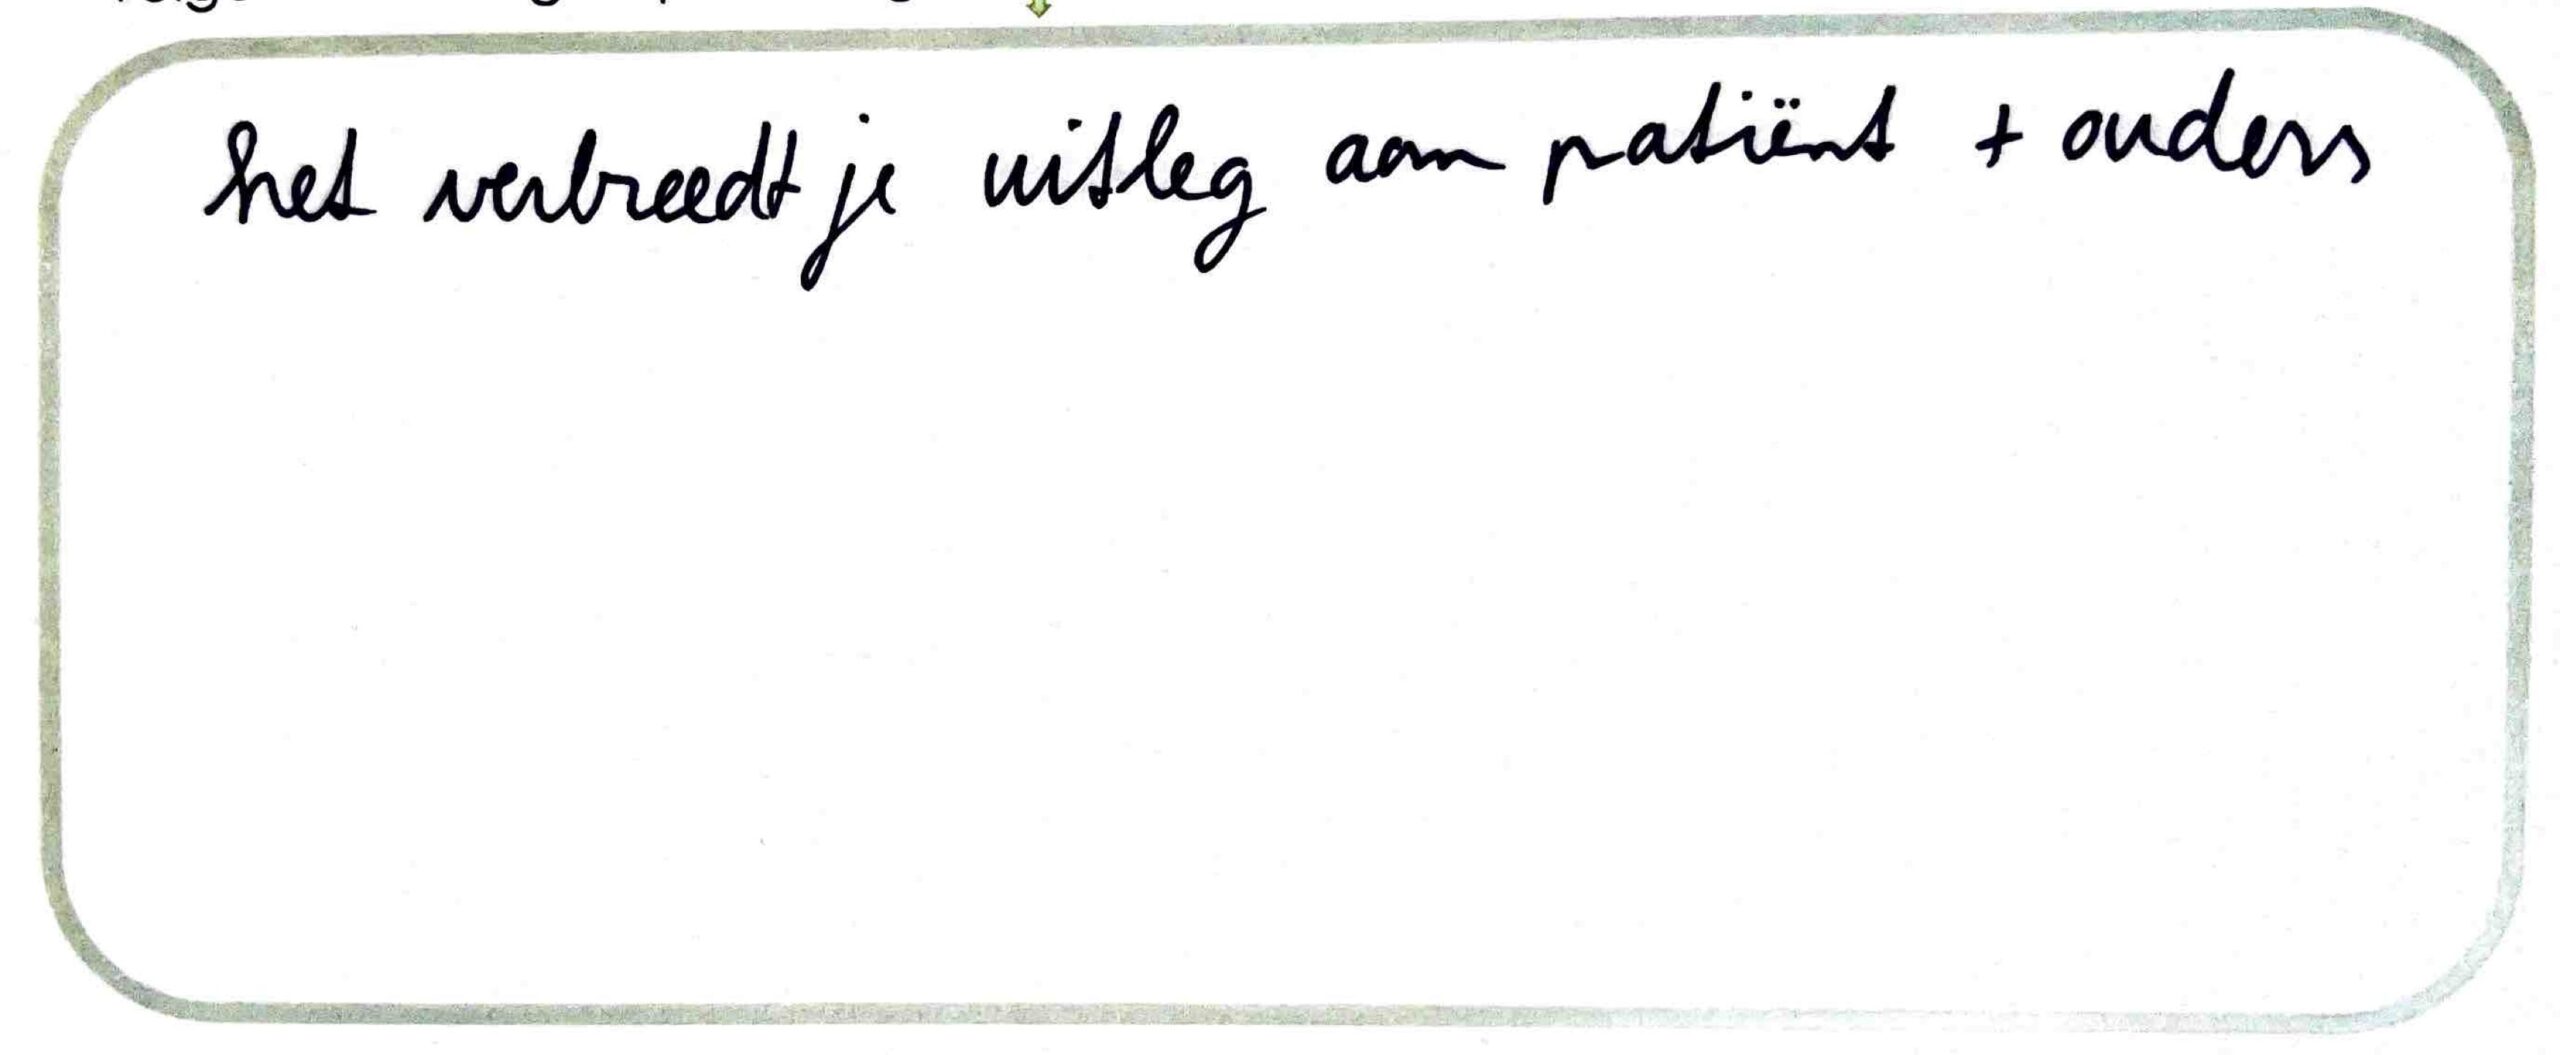 het verbreedt je uitleg aan patiënt + ouders